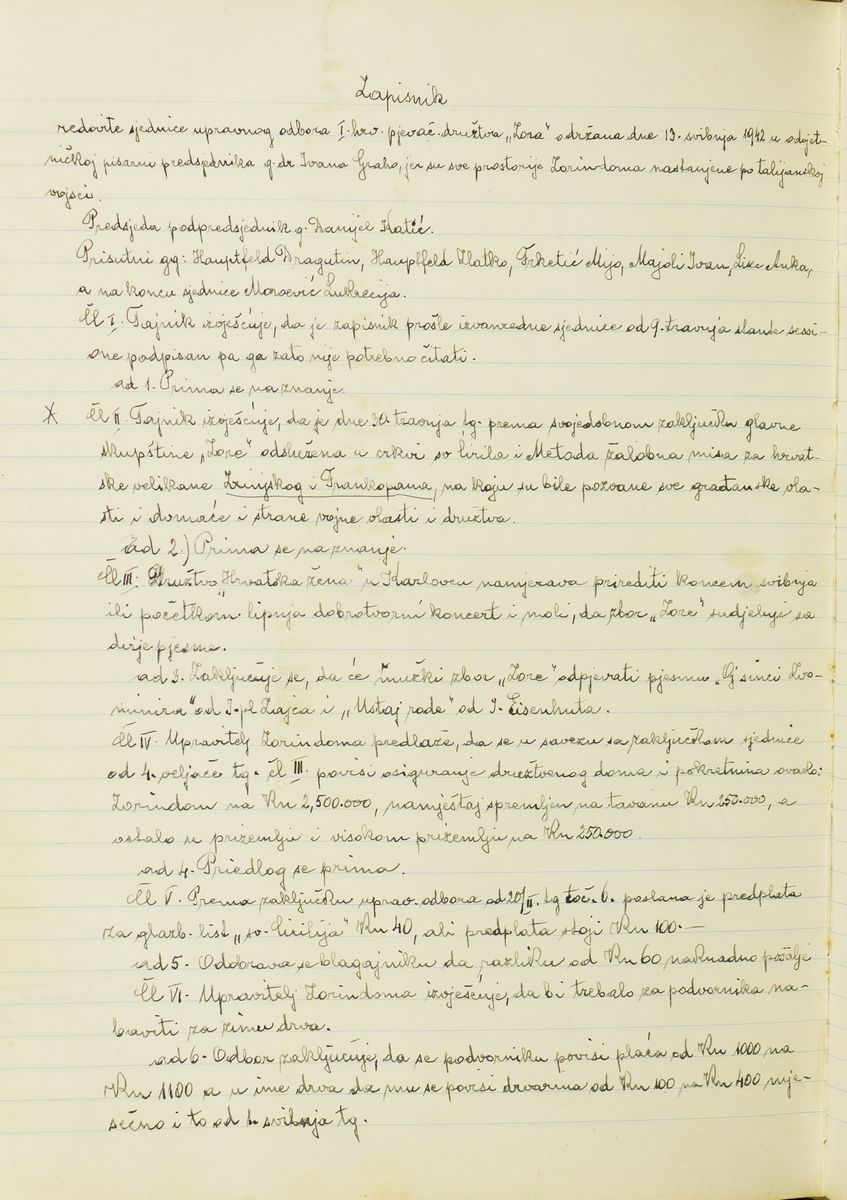 Zapisnik
redovite sjednice upravnog odbora I. hrv. pjevač. družtva „Zora" održana dne 13. svibnja 1942 u odvjet-
ničkoj pisarni predsjednika g. dr Ivana Graho, jer su sve prostorije Zorin-doma nastanjene po talijanskoj
vojsci.
Predsjeda podpredsjednik g. Danijel Katić.
Prisutni gg: Hauptfeld Dragutin, Hauptfeld Zlatko, Frketić Mijo, Majoli Ivan, Anka,
a na koncu sjednice Lukrecija.
Čl I. Tajnik izvješćuje, da je zapisnik prošle izvanredne sjednice od 9. travnja stante sessi-
one podpisan pa ga zato nije potrebno čitati.
ad 1. Prima se na znanje.
X Čl II. Tajnik izvješćuje, da je dne 30. travnja tg. prema svojedobnom zaključku glavne
skupštine „Zore" odslužena u crkvi sv Ćirila i Metoda žalobna misa za hrvat-
ske velikane Zrinjskog i Frankopana, na koju su bile pozvane sve građanske vla-
sti i domaće i strane vojne vlasti i družtva.
ad 2.) Prima se na znanje.
Čl III: Družtvo „Hrvatska žena" u Karlovcu namjerava prirediti koncem svibnja
ili početkom lipnja dobrotvorni koncert i moli, da zbor „Zore" sudjeluje sa
dvije pjesme.
ad 3. Zaključuje se, da će mužki zbor „Zore" odpjevati pjesmu „Oj sinci Zvo-
nimira" od I. pl Zajca i „Ustaj rode" od I. Eisenhuta.
Čl IV. Upravitelj Zorindoma predlaže, da se u savezu sa zaključkom sjednice
od 4. veljače tg. čl III povisi osiguranje družtvenog doma i pokretnina ovako:
Zorindom na Kn 2,500.000, namještaj spremljen na tavanu Kn 250.000, a
ostalo u prizemlju i visokom prizemlju na Kn 250.000.
ad 4. Priedlog se prima.
Čl V. Prema zaključku uprav. odbora od 20/II. tg toč. 6. poslana je predplata
za glazb. list „sv. Cicilija" Kn 40, ali predplata stoji Kn 100.—
ad 5. Odobrava se blagajniku da razliku od Kn 60 naknadno pošalje
Čl VI. Upravitelj Zorindoma izvješćuje, da bi trebalo za podvornika na-
baviti za zimu drva.
ad 6. Odbor zaključuje, da se podvorniku povisi plaća od Kn 1000 na
Kn 1100 a u ime drva da mu se povisi drvarina od Kn 100 na Kn 400 mje-
sečno i to od 1. svibnja tg.